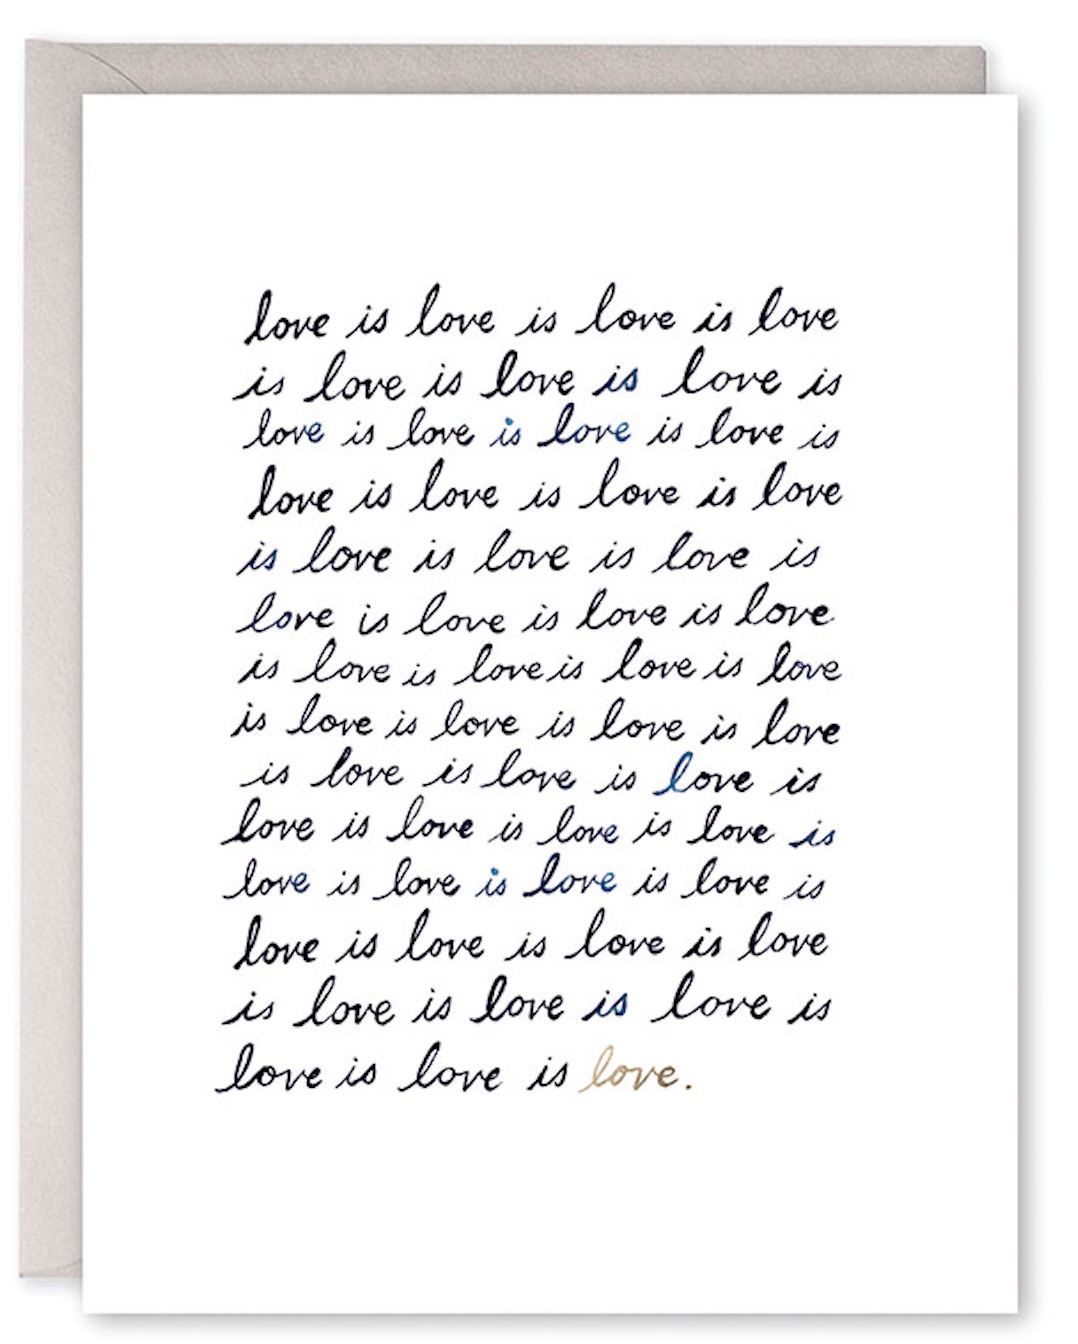 love is love is love is love
is love is love is love is
love is love is love is love is
love is love is love is love
is love is love is love is
love is love is love is love
is love is love is love is love
is love is love is love is love
is love is love is love is
love is love is love is love is
love is love is love is love is
love is love is love is love
is love is love is love is
love is love is love.